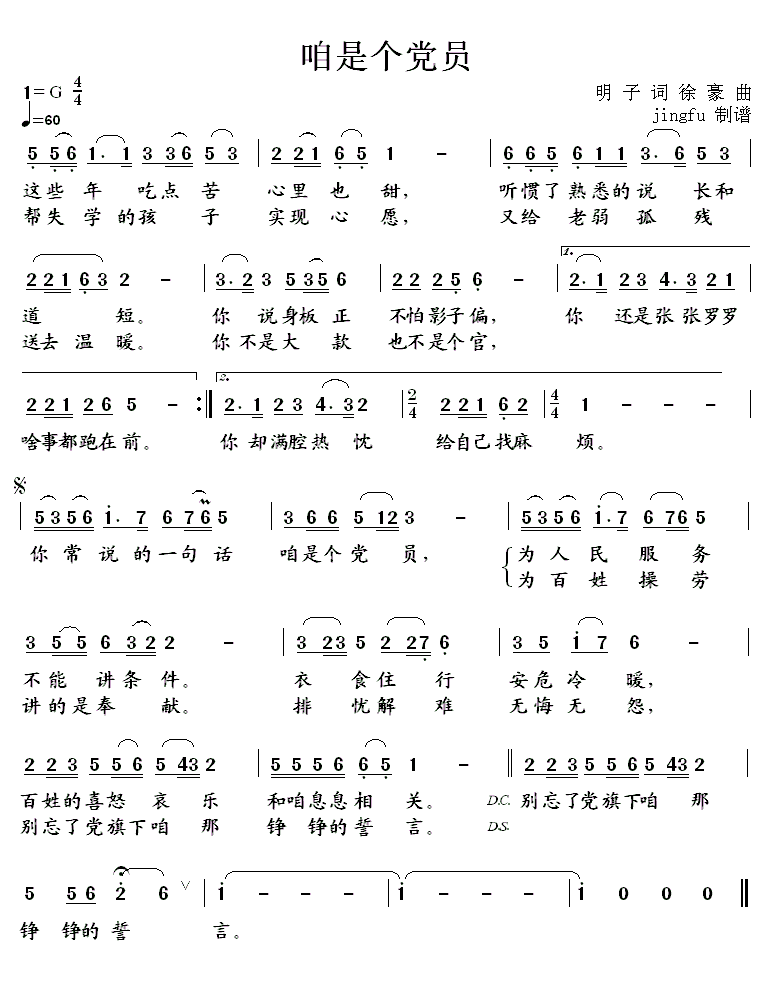 咱是个党员
1=G 4/4
明 子 词 徐 豪 曲
♩=60
jingfu 制谱
5 5 6 1· 1 3 3 6 5 3 | 2 2 1 6 5 1 - | 6 6 5 6 1 1 3· 6 5 3 |
这些 年 吃点 苦 心里 也 甜， 听惯了熟悉的说 长和
帮失 学 的孩 子 实现 心 愿， 又给 老弱 孤 残
1.
2 2 1 6 3 2 - | 3· 2 3 5 3 5 6 | 2 2 2 2 5 6 - | 2· 1 2 3 4· 3 2 1 |
道 短。 你 说身板 正 不怕影子偏， 你 还是张 张罗罗
送去 温 暖。 你不是大 款 也不是个官，
2.
2 2 1 2 6 5 - :‖ 2· 1 2 3 4· 3 2 | 2/4 2 2 1 6 2 | 4/4 1 - - - |
啥事都跑在 前。 你 却满腔热 忱 给自己找麻 烦。
5 3 5 6 1· 7 6 7 6 5 | 3 6 6 5 1 2 3 - | 5 3 5 6 1· 7 6 7 6 5 |
你 常 说 的 一 句 话 咱是个 党 员， 为 人 民 服 务
为 百 姓 操 劳
3 5 5 6 3 2 2 - | 3 2 3 5 2 2 7 6 | 3 5 1 7 6 - |
不能 讲条 件。 衣 食住 行 安危冷 暖，
讲的是奉 献。 排 忧解 难 无悔无 怨，
2 2 3 5 5 6 5 4 3 2 | 5 5 5 6 6 5 1 - ‖ 2 2 3 5 5 6 5 4 3 2 |
百姓的喜怒 哀 乐 和咱息息相 关。 D.C. 别忘了党旗下咱 那
别忘了党旗下咱 那 铮 铮的誓 言。 D.S.
5 5 6 2 6 ∨ | 1 - - - | 1 - - - | 1 0 0 0 ‖
铮 铮的 誓 言。